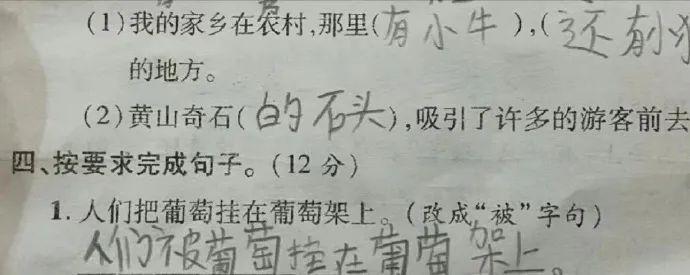 (1)我的家乡在农村,那里(有小牛),(还有小
的地方。
(2)黄山奇石(的石头),吸引了许多的游客前去
四、按要求完成句子。(12分)
1.人们把葡萄挂在葡萄架上。(改成“被”字句)
人们被葡萄挂在葡萄架上。